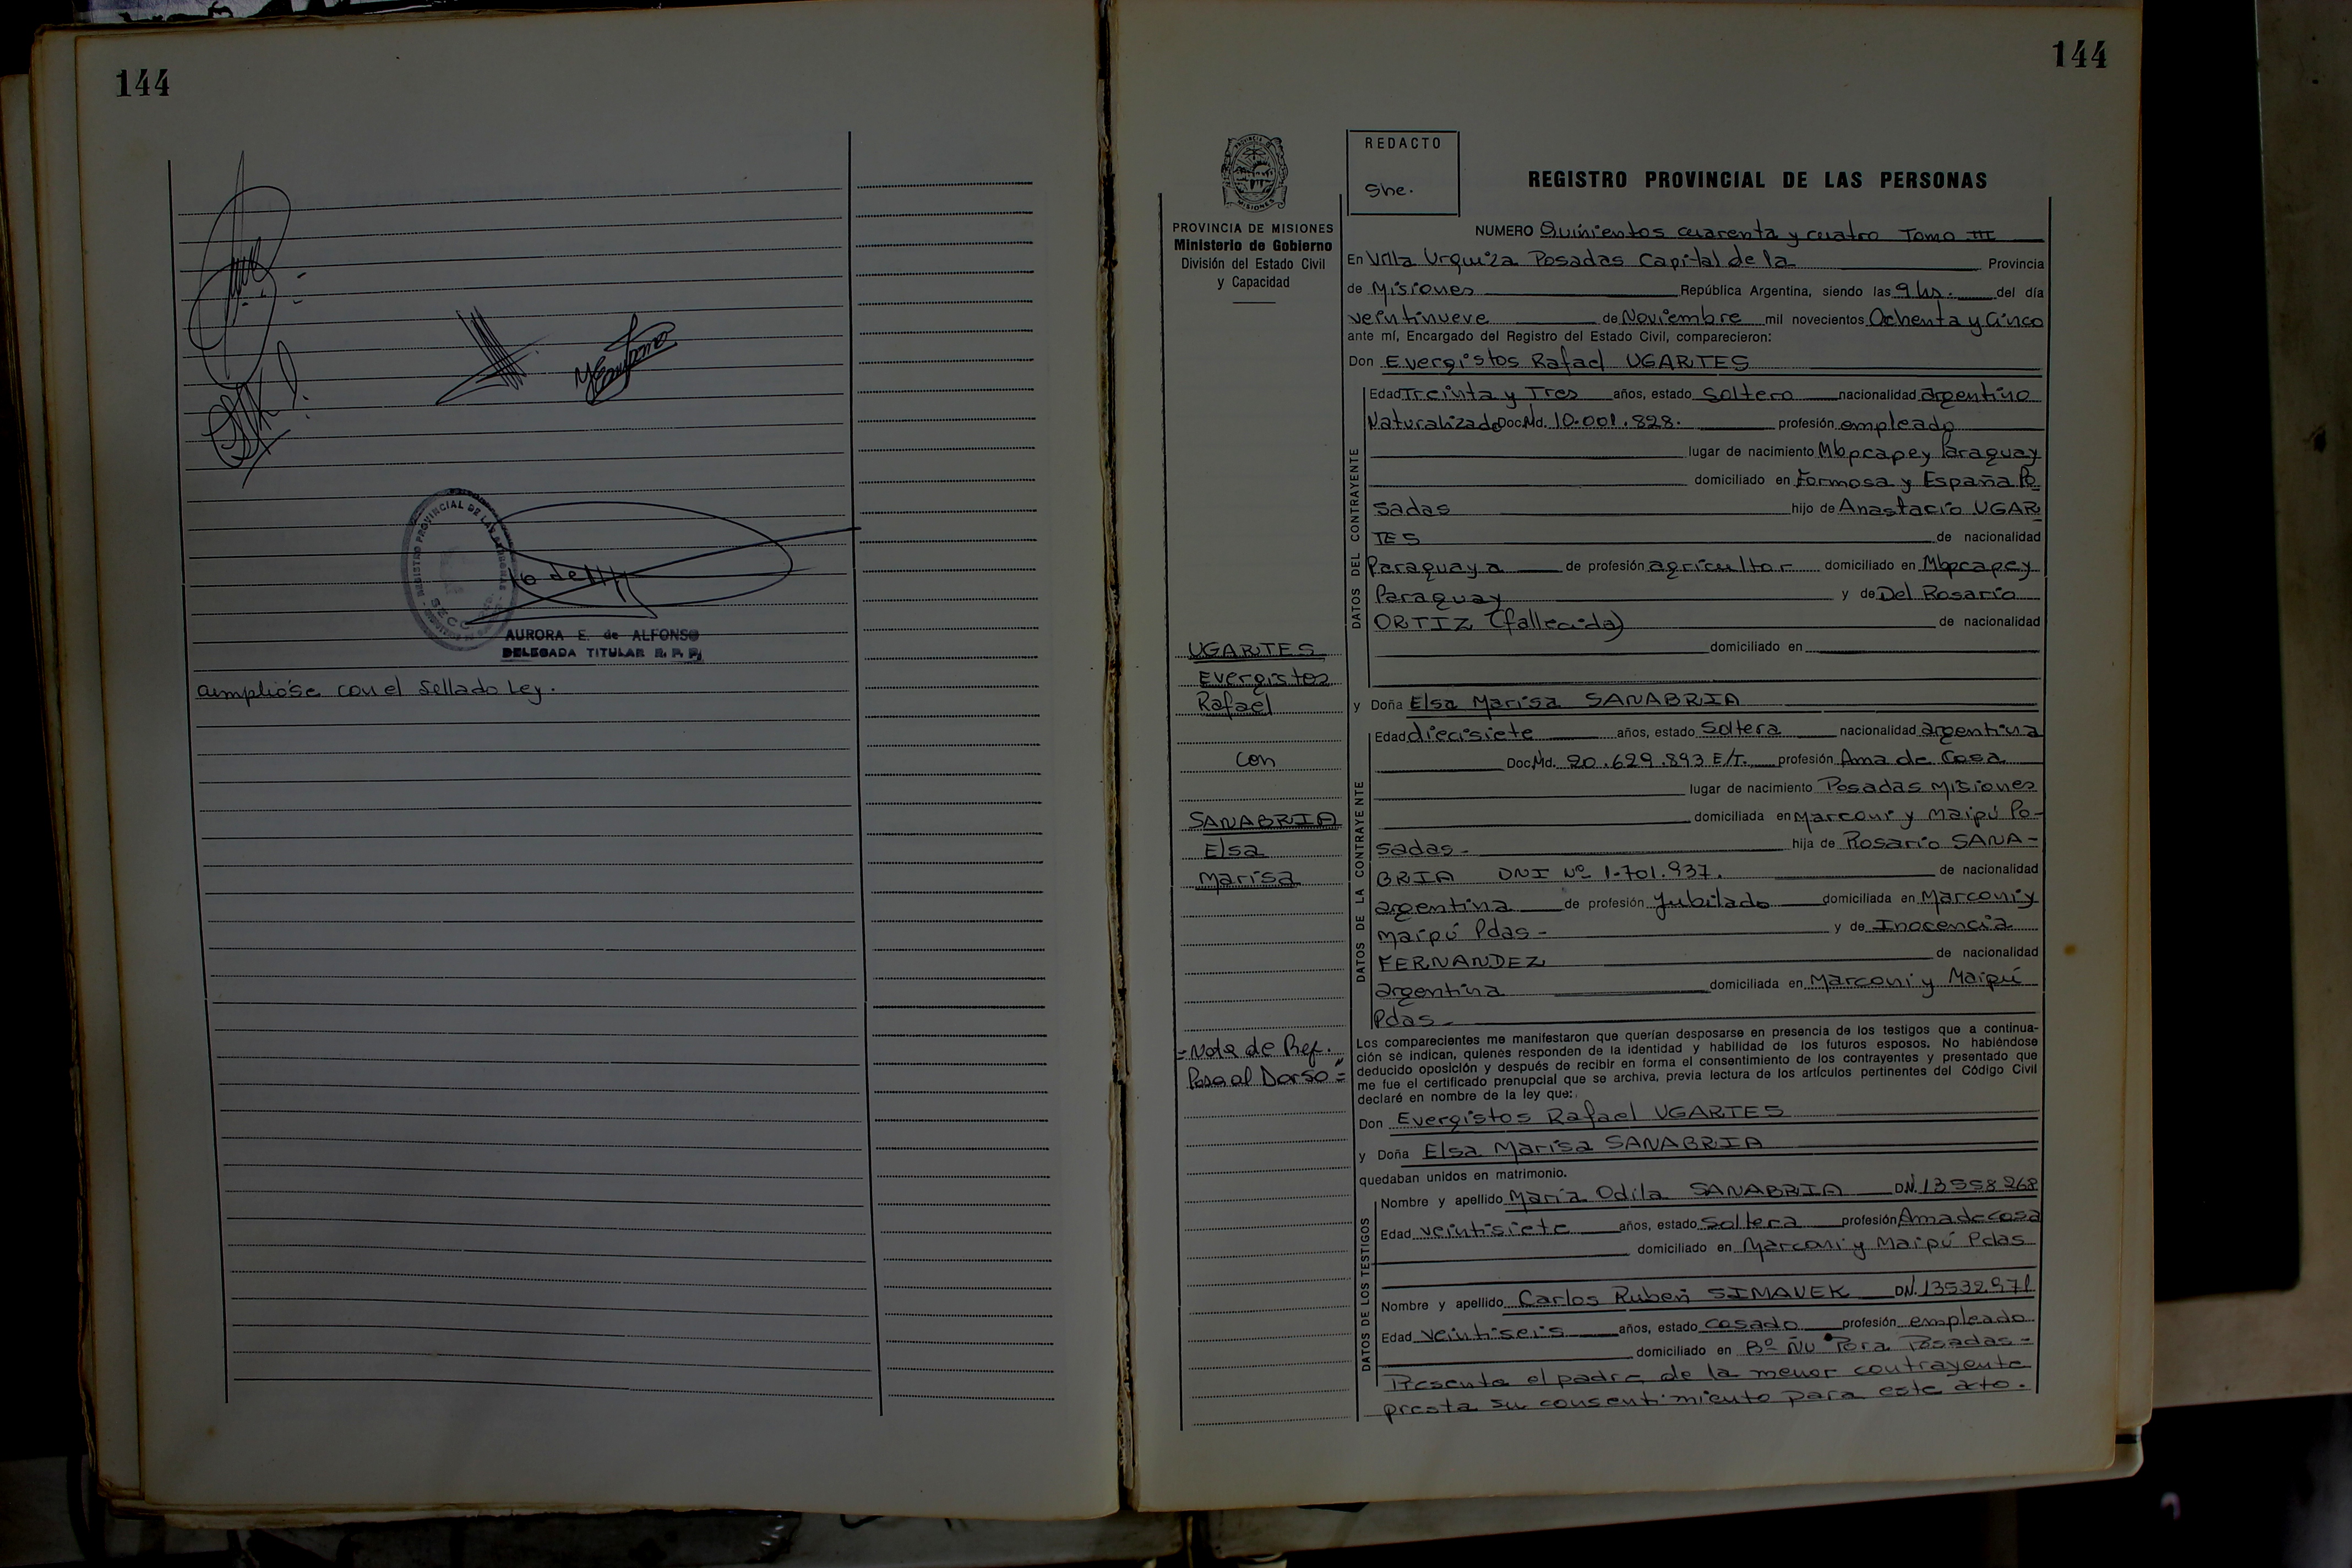 144
REGISTRO PROVINCIAL DE LAS
SECC
AURORA E. de ALFONSO
DELEGADA TITULAR R. P. P.
ampliose con el Sellado Ley.
144
PROVINCIA DE MISIONES
Ministerio de Gobierno
División del Estado Civil
y Capacidad
UGARTES
Evergistos
Rafael
con
SANABRIA
Elsa
Marisa
= Nota de Ref.
Pasa al Dorso =
REDACTO
She.
REGISTRO PROVINCIAL DE LAS PERSONAS
NUMERO Quinientos cuarenta y cuatro Tomo III
En Villa Urquiza Posadas Capital de la Provincia
de Misiones República Argentina, siendo las 9 hs. del día
veintinueve de Noviembre mil novecientos Ochenta y Cinco
ante mí, Encargado del Registro del Estado Civil, comparecieron:
Don Evergistos Rafael UGARTES
DATOS DEL CONTRAYENTE
Edad Treinta y Tres años, estado Soltero nacionalidad argentino
Naturalizado Doc. Nd. 10.001.828. profesión empleado
lugar de nacimiento Mbpcapey Paraguay
domiciliado en Formosa y España Po
sadas hijo de Anastacio UGAR
TES de nacionalidad
Paraguaya de profesión agricultor domiciliado en Mbpcapey
Paraguay y de Del Rosario
ORTIZ (fallecida) de nacionalidad
domiciliado en
y Doña Elsa Marisa SANABRIA
DATOS DE LA CONTRAYENTE
Edad diecisiete años, estado Soltera nacionalidad argentina
Doc. Nd. 20.629.893 E/T. profesión Ama de Casa
lugar de nacimiento Posadas Misiones
domiciliada en Marconi y Maipú Po-
sadas - hija de Rosario SANA-
BRIA DNI Nº 1.701.937. de nacionalidad
argentina de profesión Jubilado domiciliada en Marconi y
Maipú Pdas - y de Inocencia
FERNANDEZ de nacionalidad
argentina domiciliada en Marconi y Maipú
Pdas -
Los comparecientes me manifestaron que querían desposarse en presencia de los testigos que a continua-
ción se indican, quienes responden de la identidad y habilidad de los futuros esposos. No habiéndose
deducido oposición y después de recibir en forma el consentimiento de los contrayentes y presentado que
me fue el certificado prenupcial que se archiva, previa lectura de los artículos pertinentes del Código Civil
declaré en nombre de la ley que:
Don Evergistos Rafael UGARTES
y Doña Elsa Marisa SANABRIA
quedaban unidos en matrimonio.
DATOS DE LOS TESTIGOS
Nombre y apellido María Odila SANABRIA DN. 13558268
Edad veintisiete años, estado Soltera profesión Ama de casa
domiciliado en Marconi y Maipú Pdas
Nombre y apellido Carlos Rubén SIMAVEK DN. 13532971
Edad veintiseis años, estado casado profesión empleado
domiciliado en Bº Ñu Pora Posadas -
Presente el padre de la menor contrayente
presta su consentimiento para este acto.